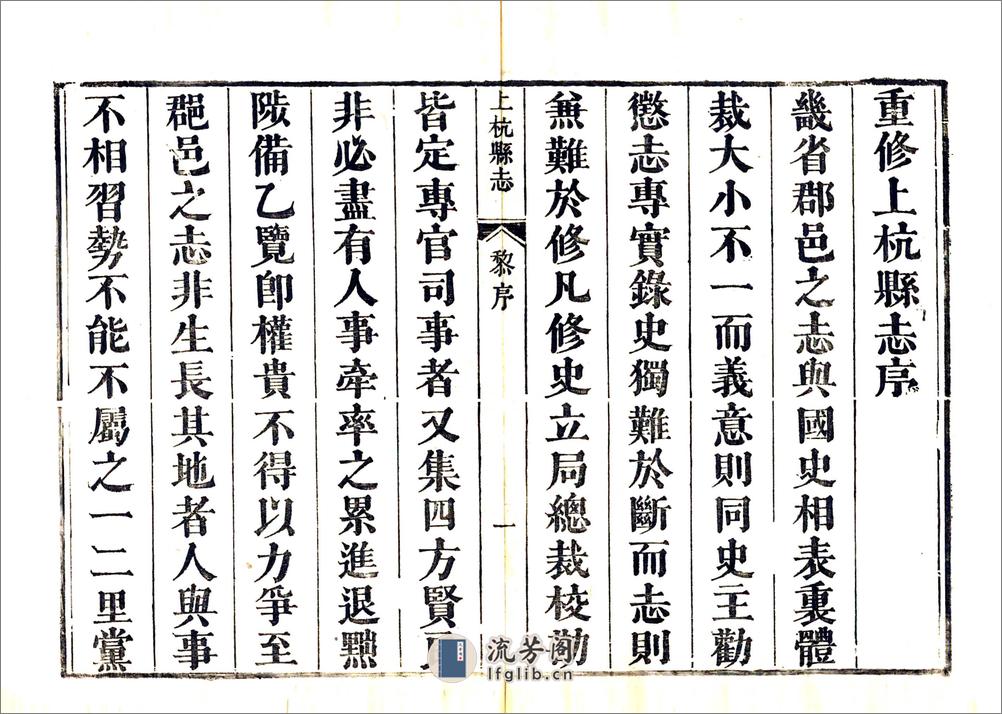 重修上杭縣志序
畿省郡邑之志與國史相表裏體
裁大小不一而義意則同史主勸
懲志專實錄史獨難於斷而志則
無難於修凡修史立局總裁校勘
上杭縣志
黎序
一
皆定專官司事者又集四方賢
非必盡有人事牽率之累進退黜
陟備乙覽卽權貴不得以力爭至
郡邑之志非生長其地者人與事
不相習勢不能不屬之一二里黨
流芳阁
lfglib.cn